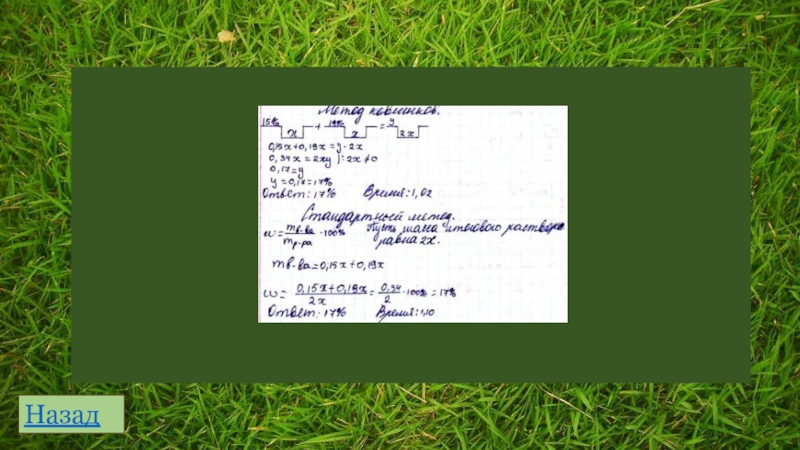 Метод ковшиков.
15% 19% y
x + x = 2x
0,15x+0,19x=y·2x
0,34x=2xy |:2x≠0
0,17=y
y=0,17=17%
Ответ: 17% Время: 1,02
Стандартный метод.
ω= mв-ва/mр-ра ·100% Пусть масса итогового раствора
равна 2x.
mв-ва=0,15x+0,19x
ω= 0,15x+0,19x/2x = 0,34/2 ·100%=17%
Ответ: 17% Время: 1,10
Назад